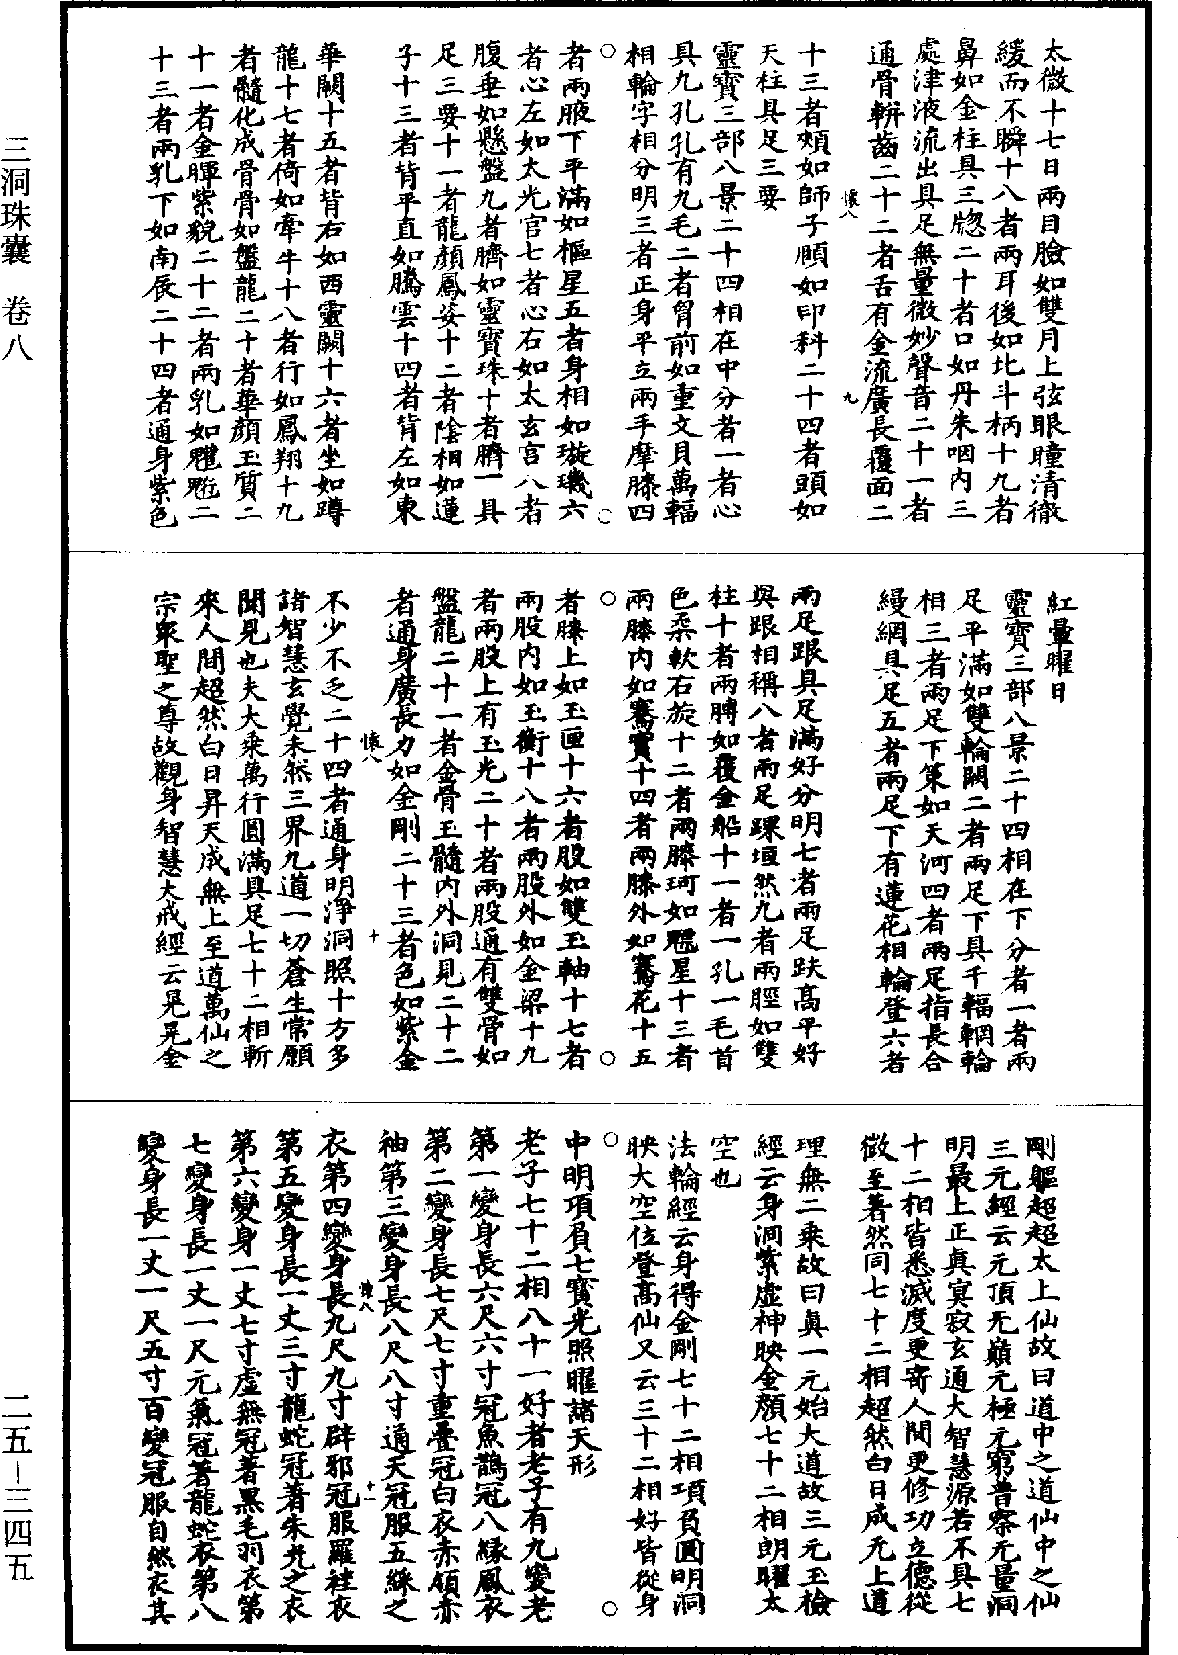 太微十七日兩目臉如雙月上弦眼瞳清徹
緩而不瞬十八者兩耳後如北斗柄十九者
鼻如金柱具三牕二十者口如丹朱咽内三
處津液流出具足無量微妙聲音二十一者
通骨軿齒二十二者舌有金流廣長覆面二
懷八
九
十三者頰如師子頤如印科二十四者頭如
天柱具足三要
靈寶三部八景二十四相在中分者一者心
具九孔孔有九毛二者胷前如重文貝萬輻
相輪字相分明三者正身平立兩手摩膝四
者兩腋下平滿如樞星五者身相如璇璣六
者心左如太光官七者心右如太玄宫八者
腹垂如懸盤九者臍如靈寶珠十者臍一具
足三要十一者龍顔鳳姿十二者陰相如蓮
子十三者背平直如騰雲十四者背左如東
華闕十五者背右如西靈闕十六者坐如蹲
龍十七者倚如牽牛十八者行如鳳翔十九
者髓化成骨骨如盤龍二十者華顔玉質二
十一者金暉紫貌二十二者兩乳如魓䰢二
十三者兩乳下如南辰二十四者通身紫色
紅暈曜日
靈寶三部八景二十四相在下分者一者兩
足平滿如雙輪闕二者兩足下具千輻輞輪
相三者兩足下策如天河四者兩足指長合
縵網具足五者兩足下有蓮花相輪登六者
兩足跟具足滿好分明七者兩足趺高平好
與跟相稱八者兩足踝垣然九者兩脛如雙
柱十者兩膞如覆金船十一者一孔一毛首
色柔軟右旋十二者兩膝珂如魒星十三者
兩膝内如騫實十四者兩膝外如騫花十五
者膝上如玉匣十六者股如雙玉軸十七者
兩股内如玉衡十八者兩股外如金梁十九
者兩股上有玉光二十者兩股通有雙骨如
盤龍二十一者金骨玉髓内外洞見二十二
者通身廣長力如金剛二十三者色如紫金
懷八
十
不少不乏二十四者通身明淨洞照十方多
諸智慧玄覺未然三界九道一切蒼生常願
聞見也夫大乘萬行圓滿具足七十二相斬
來人間超然白日昇天成無上至道萬仙之
宗衆聖之尊故觀身智慧大戒經云晃晃金
剛軀超超太上仙故曰道中之道仙中之仙
三元經云元頂无巔元極元窮普察无量洞
明最上正真寘寂玄通大智慧源若不具七
十二相皆悉滅度更寄人間更修功立德從
微至著然同七十二相超然白日成无上道
理無二乘故曰真一元始大道故三元玉檢
經云身洞紫虛神映金顔七十二相朗曜太
空也
法輪經云身得金剛七十二相項負圓明洞
映大空位登高仙又云三十二相好皆從身
中明項負七寶光照曜諸天形
老子七十二相八十一好者老子有九變老
第一變身長六尺六寸冠魚鵲冠八緣鳳衣
第二變身長七尺七寸重疊冠白衣赤領赤
袖第三變身長八尺八寸通天冠服五綵之
懷八
十一
衣第四變身長九尺九寸辟邪冠服羅袿衣
第五變身長一丈三寸龍蛇冠著朱光之衣
第六變身一丈七寸虛無冠著黑毛羽衣第
七變身長一丈一尺元氣冠著龍蛇衣第八
變身長一丈一尺五寸百變冠服自然衣其
三洞珠囊　卷八
二五—三四五